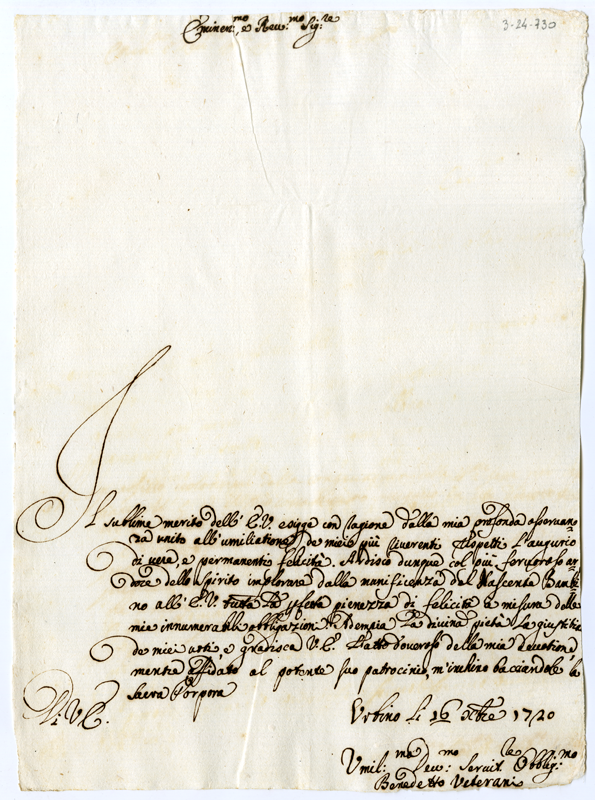 3-24-730
Eminen:mo e Reu:mo Sig:re
Il sublime merito dell' E.V. esigge con ragione dalla mia profonda osseruan
za unito all'umiliatione de mieie più riuerenti rispetti l'augurio
di uera, e permanenti felicità. Ardisco dunque col più feruoroso ar
dore dello Spirito implorare dalla munificenza del Nascente Bambi
no all' E.V. tutta la pfetta pienezza di felicità à misura delle
mie innumerabili obbligazioni. Adempia la diuina pietà la giustitia
de miei uoti, e gradisca V.E. l'atto doueroso della mia deuotione
mentre affidato al potente suo patrocinio, m'inchino bacciandole la
Sacra Porpora
Di V.E.
Vrbino li 16 Xbre 1720
Vmil:mo Deu:mo Seruit:re Obblig:mo
Benedetto Veterani